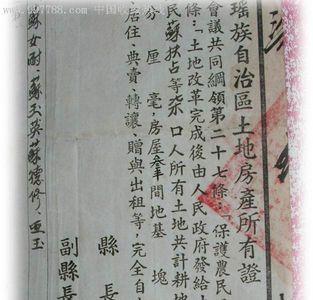 瑤族自治區土地房產所有證
會議共同綱領第二十七條：「保護農民
條：「土地改革完成後由人民政府發給
民蘇扶占等柒口人所有土地共計耕地
分厘毫，房屋叁間地基塊
居住、典賣、轉讓、贈與出租等，完全自
縣長
副縣長
蘇玉英蘇德修、亜玉